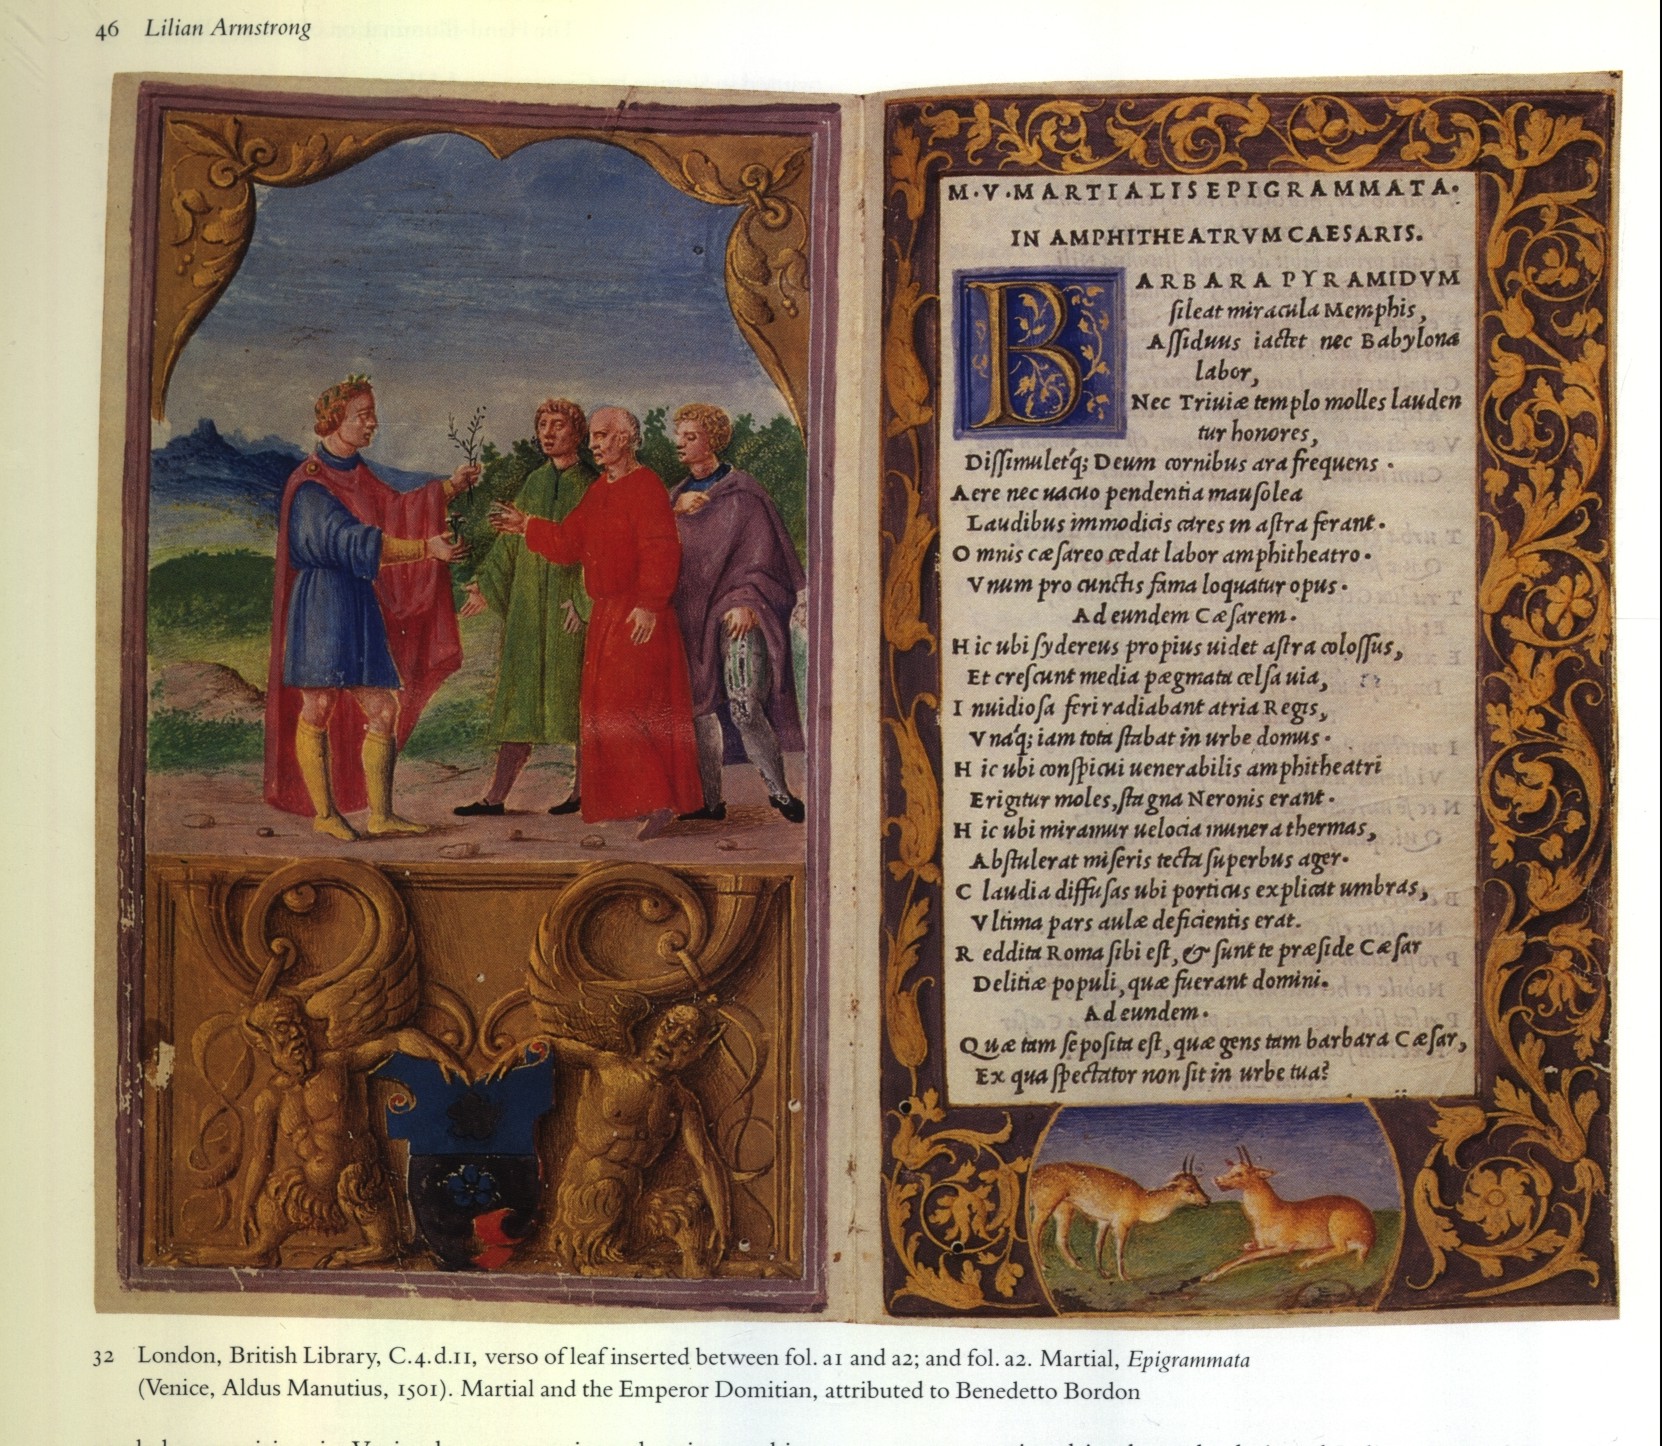 46 Lilian Armstrong
M·V·MARTIALIS EPIGRAMMATA·
IN AMPHITHEATRVM CAESARIS.
BARBARA PYRAMIDVM
ſileat miracula Memphis,
Aſſiduus iactet nec Babylona
labor,
Nec Triuiæ templo molles lauden
tur honores,
Diſſimulet´q; Deum cornibus ara frequens.
Aere nec uacuo pendentia mauſolea
Laudibus immodicis cares in aſtra ferant.
Omnis cæſareo cedat labor amphitheatro.
Vnum pro cunctis fama loquatur opus.
Ad eundem Cæſarem.
Hic ubi ſydereus propius uidet aſtra coloſſus,
Et creſcunt media pægmata celſa uia,
Inuidioſa feri radiabant atria Regis,
Vna´q; iam tota ſtabat in urbe domus.
Hic ubi conſpicui uenerabilis amphitheatri
Erigitur moles, ſtagna Neronis erant.
Hic ubi miramur uelocia munera thermas,
Abſtulerat miſeris tecta ſuperbus ager.
Claudia diffuſas ubi porticus explicat umbras,
Vltima pars aulæ deficientis erat.
Reddita Roma ſibi eſt, & ſunt te præſide Cæſar
Delitiæ populi, quæ fuerant domini.
Ad eundem.
Quæ tam ſepoſita eſt, quæ gens tam barbara Cæſar,
Ex qua ſpectator non ſit in urbe tua?
32 London, British Library, C.4.d.11, verso of leaf inserted between fol. a1 and a2; and fol. a2. Martial, Epigrammata
(Venice, Aldus Manutius, 1501). Martial and the Emperor Domitian, attributed to Benedetto Bordon